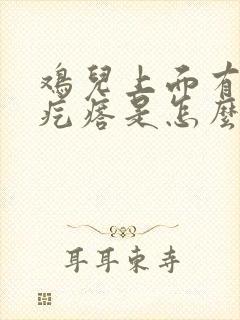 鸡兒上面有
疙瘩是怎麼
耳耳東寺